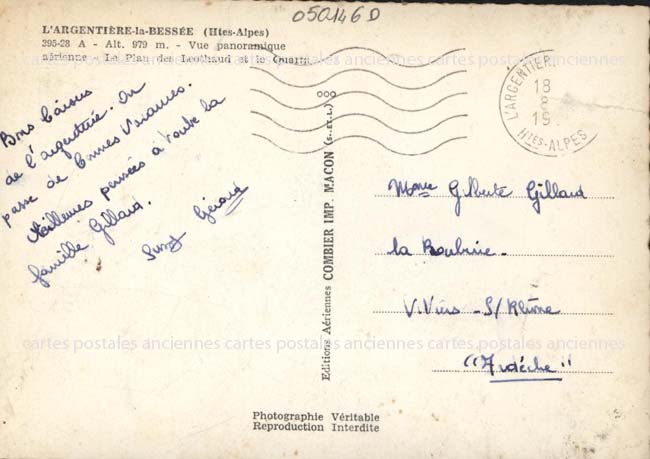 050146D
L'ARGENTIÈRE-la-BESSÉE (Htes-Alpes)
395-28 A - Alt. 979 m. - Vue panoramique
aérienne - Le Plan des Léothaud et le Quartz
Bons baisers
de l'argentière. On
passe de bonnes Vacances.
Meilleures pensées à toute la
famille Gillard.
Suzy Gérard
L'ARGENTIÈR
18
8
19
Htes-ALPES
Editions Aériennes COMBIER IMP. MACON (S.-et-L.)
Mme Gilberte Gillard
la
Viviers - S/Rhône
"Ardèche"
cartes postales anciennes cartes postales anciennes cartes postales anciennes
cartes postales anciennes cartes postales anciennes cartes postales anciennes
Photographie Véritable
Reproduction Interdite